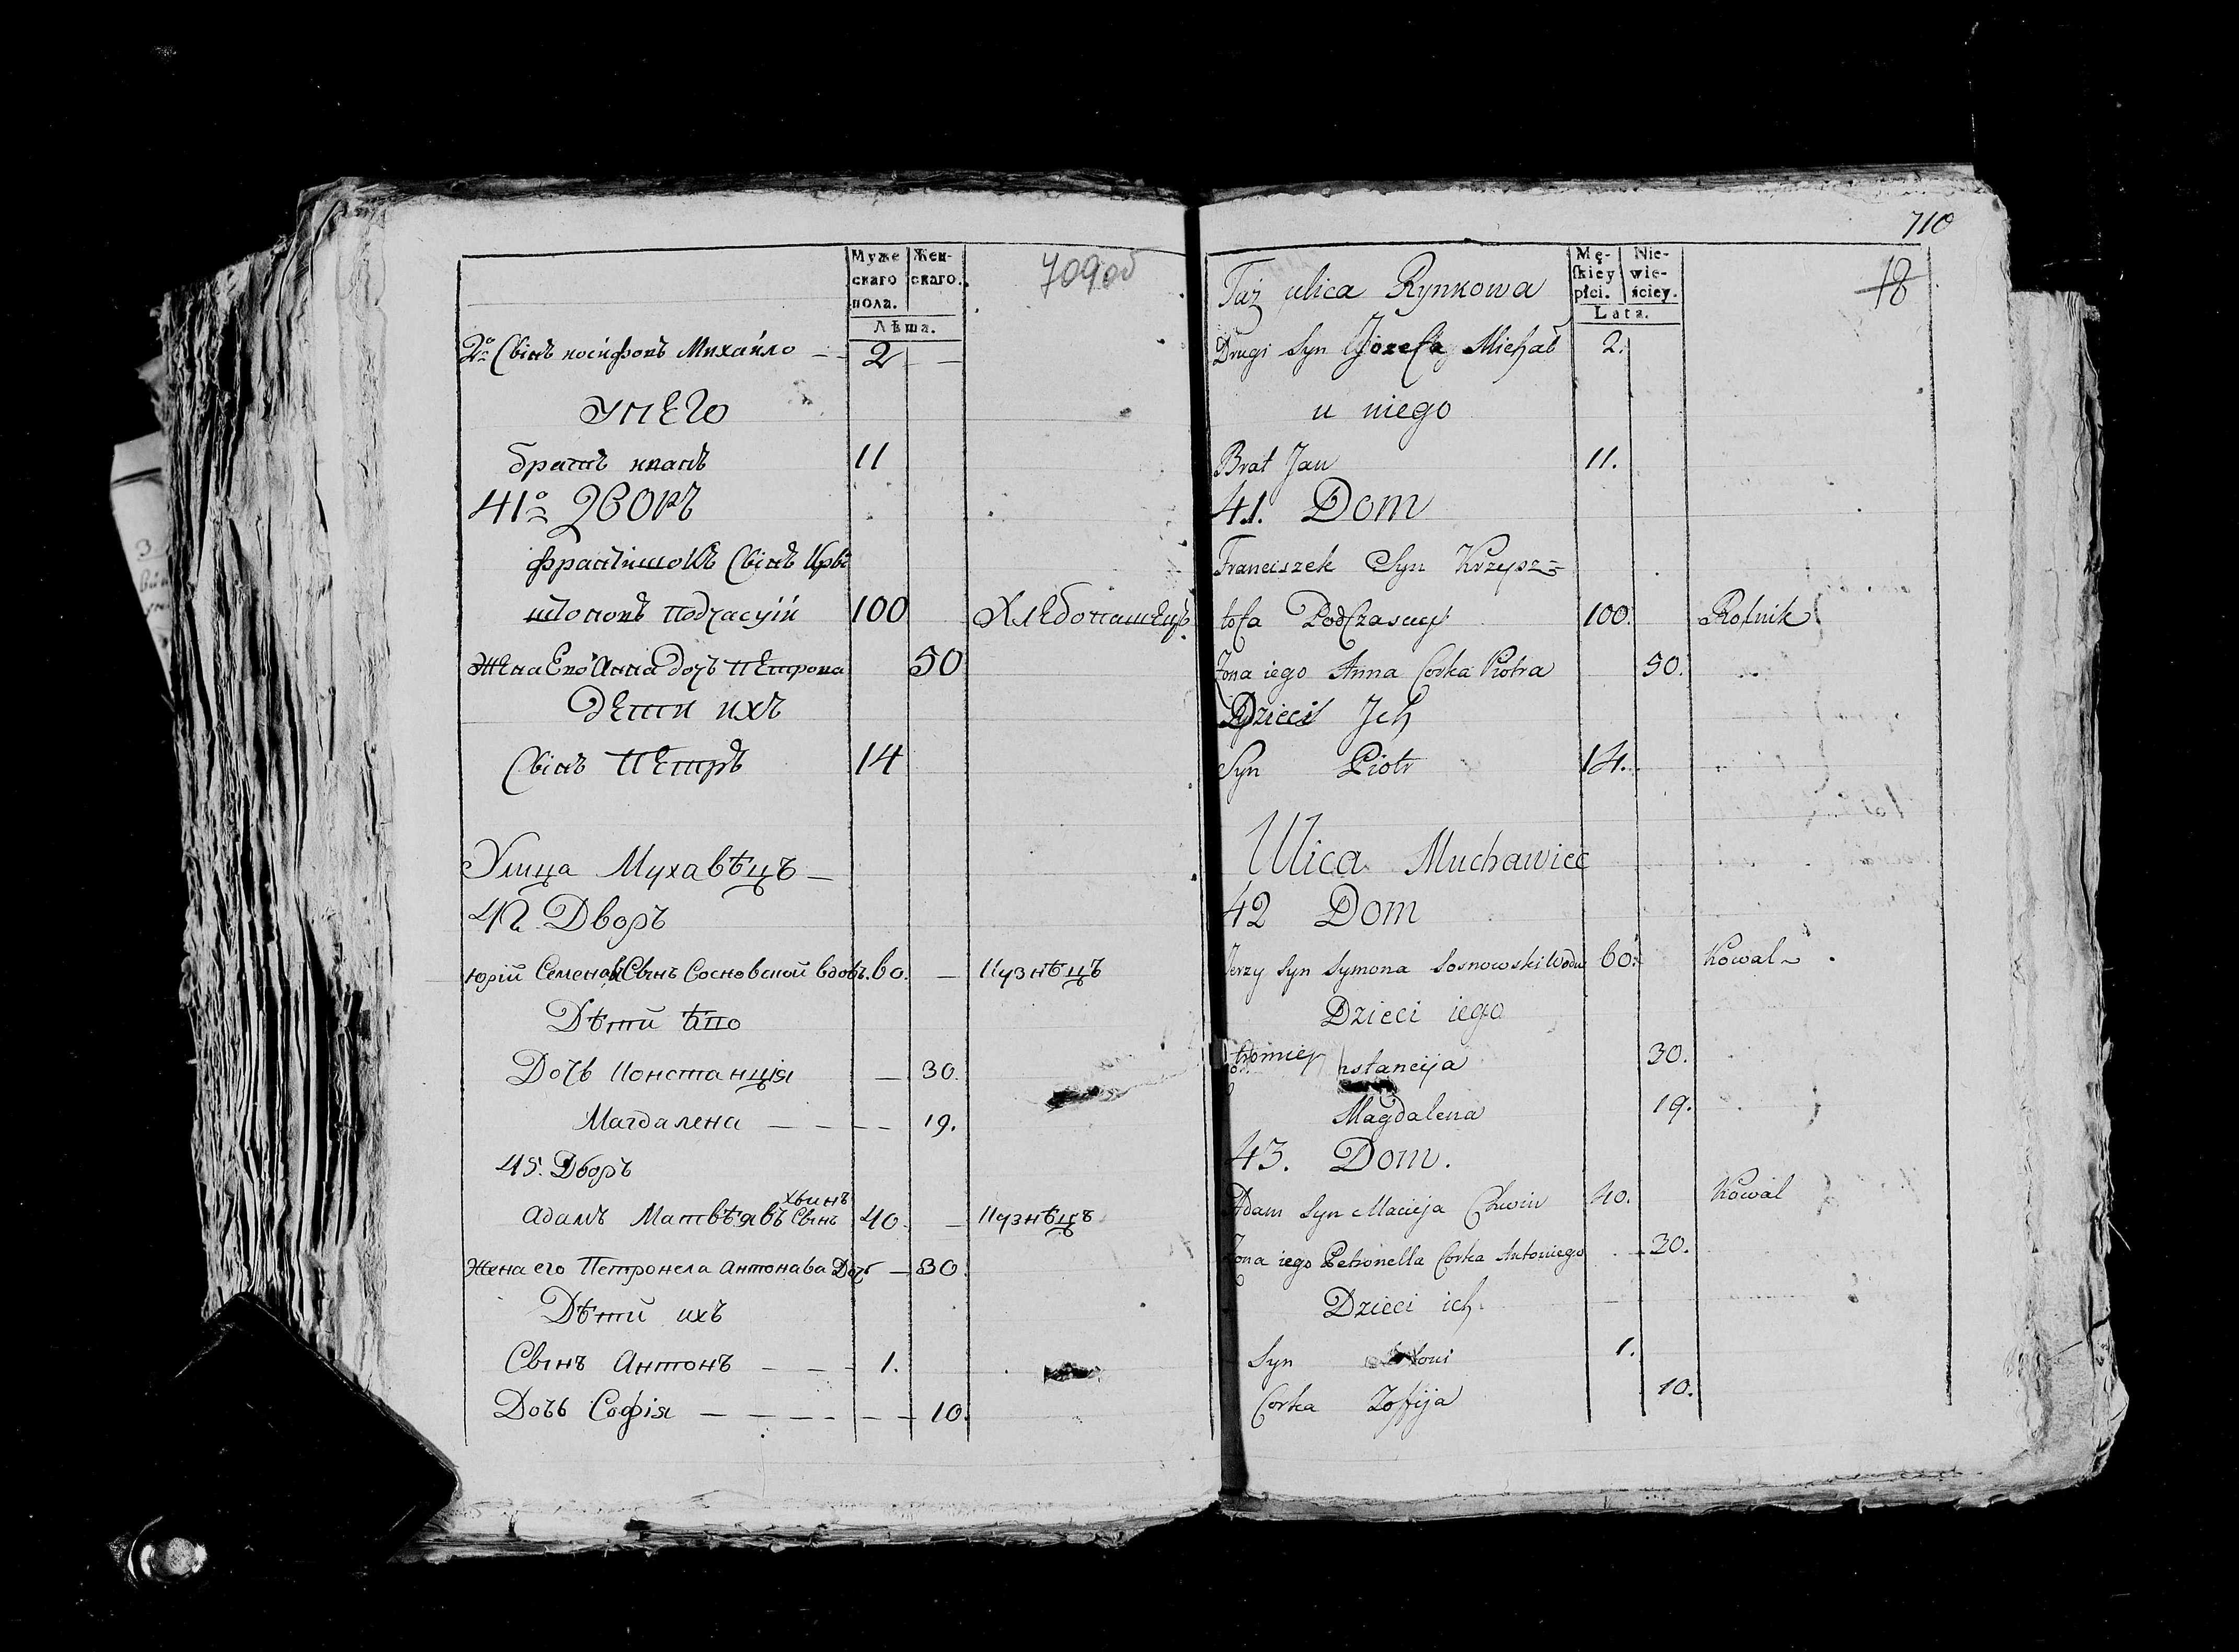 709об
Муже
скаго
пола.
Жен-
скаго.
Лѣта.
2о Свінъ иосифовъ Михайло 2
У него
братъ иванъ 11
41о Дворъ
францишокъ Свінъ Криш
штоповъ Подчасуій 100 Хлебопашецъ
Жена Его Анна дочъ Петрова 50
дети ихъ
Свінъ Петръ 14
Улица Мухавѣцъ
42 Дворъ
Юрій Семеновъ Свынъ Сосновской вдовъ. 60. Кузнѣцъ
Дѣти Его
Дочь Констанція 30.
Магдалена 19.
43. Дворъ
хвинъ
Адамъ Матвѣявъ Свынъ 40. Кузнѣцъ
Жена его Петронела Антонава Дочъ 30.
Дѣти ихъ
Свынъ Антонъ 1.
Дочь Софія 10.
710
18
Taż ulica Rynkowa
Mę-
skiey
płci.
Nie-
wie-
ściey.
Lata.
Drugi Syn Józefa Michał 2.
u niego
Brat Jan 11.
41. Dom
Franciszek Syn Krzysz=
tofa Podczaszy 100. Rolnik
Żona iego Anna Corka Piotra 50.
Dzieci Jch
Syn Piotr 14.
Ulica Muchawiec
42 Dom
Jerzy Syn Symona Sosnowski Wdow 60. Kowal
Dzieci iego
nstancyja 30.
Magdalena 19.
43. Dom.
Adam Syn Macieja Chwin 40. Kowal
Żona iego Petronella Corka Antoniego 30.
Dzieci ich
Syn toni 1.
Corka Zoffija 10.